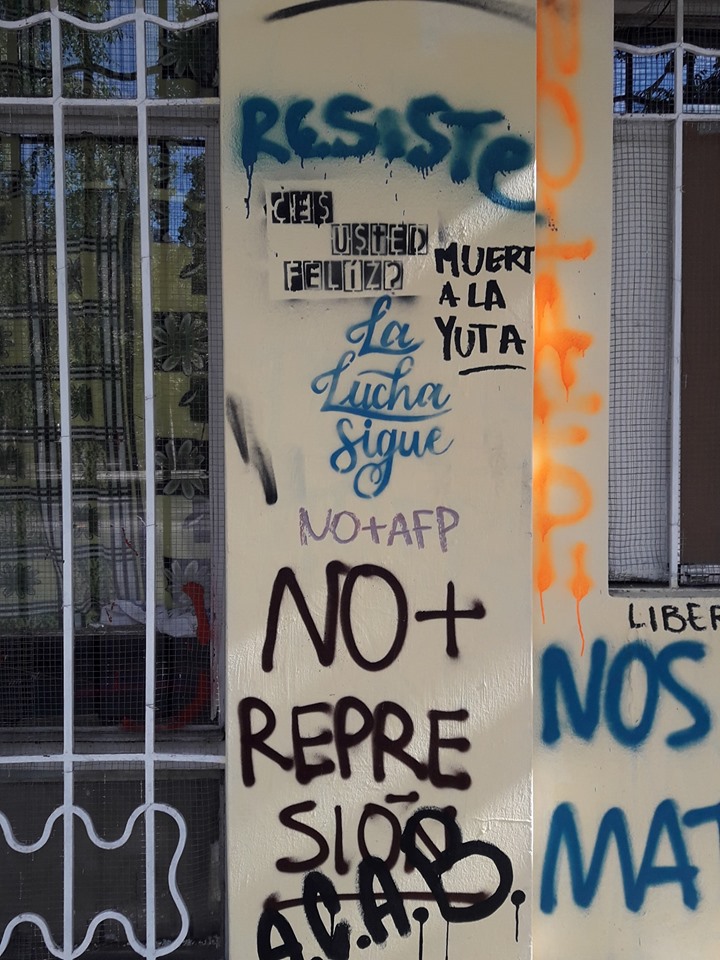 RESISTe
¿ES
USTED
FELIZ?
MUERT
A LA
YUTA
La
Lucha
sigue
NO+AFP
NO+
REPRE
SIÓN
A.C.A.B.
NO+AFP!
LIBER
NOS
MAT